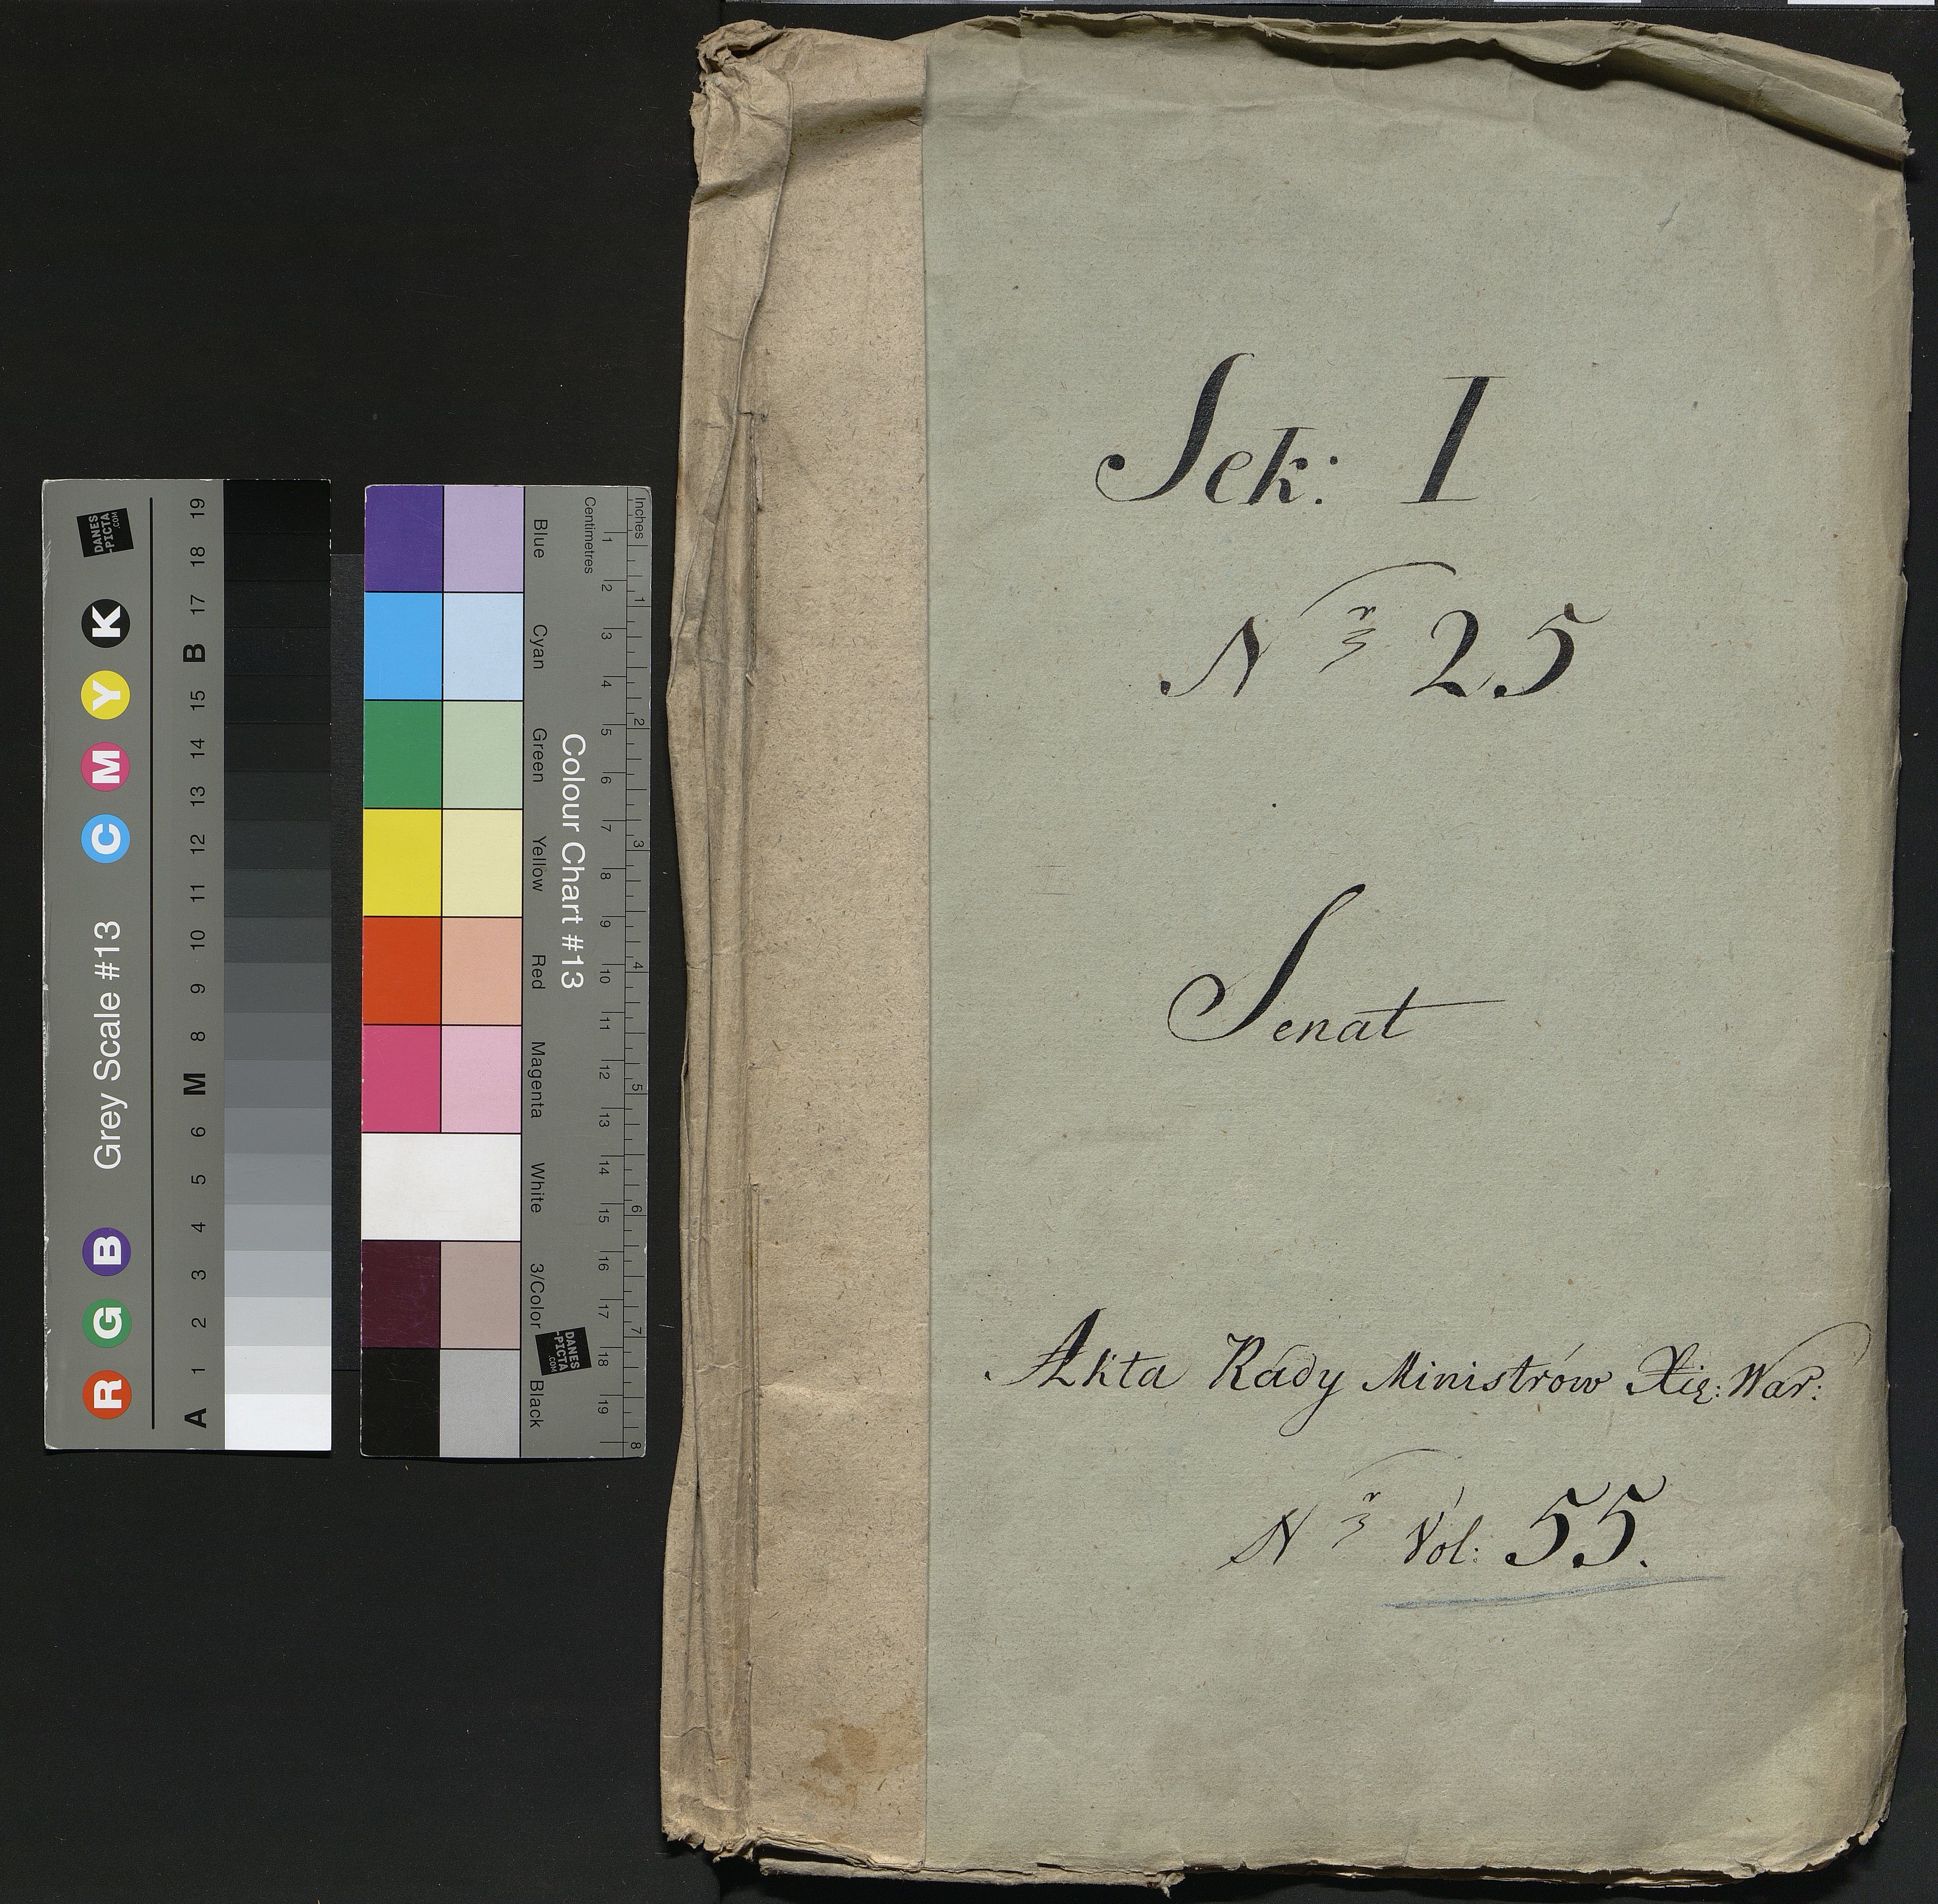 Sek: I
Nr 25
Senat
Akta Rady Ministrów Xię: War:
Nr Vol: 55.
Grey Scale #13
R G B C M Y K
A 1 2 3 4 5 6 M 8 9 10 11 12 13 14 15 B 17 18 19
DANES
-PICTA
.COM
Colour Chart #13
Blue Cyan Green Yellow Red Magenta White 3/Color Black
Centimetres 1 2 3 4 5 6 7 8 9 10 11 12 13 14 15 16 17 18 19
Inches 1 2 3 4 5 6 7 8
DANES
-PICTA
.COM